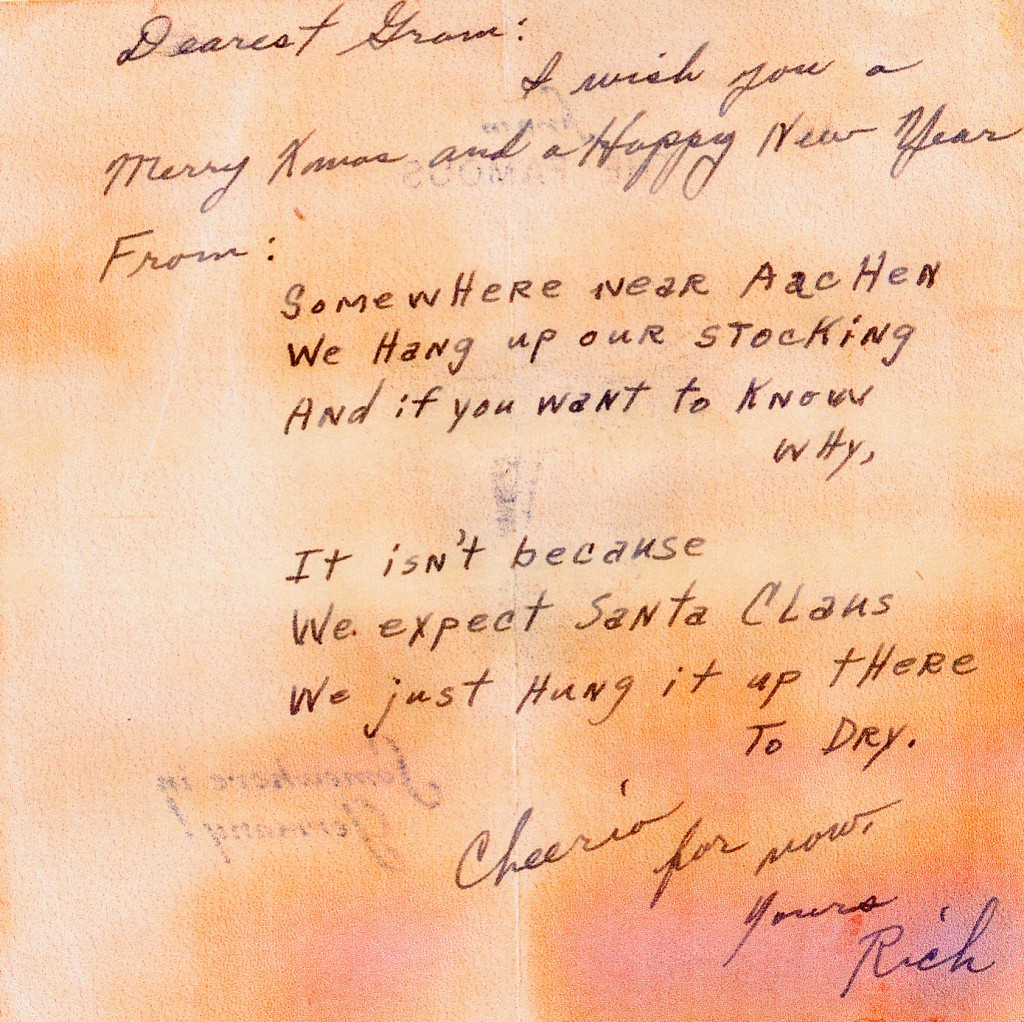 Dearest Gram:
I wish you a
Merry Xmas and a Happy New Year
From:
Somewhere near Aachen
We Hang up our stocking
And if you want to know
why,
It isn't because
We expect Santa Claus
We just Hung it up there
To Dry.
Cheerio for now.
Yours
Rich
From
FAMOUS
Somewhere in
Germany!